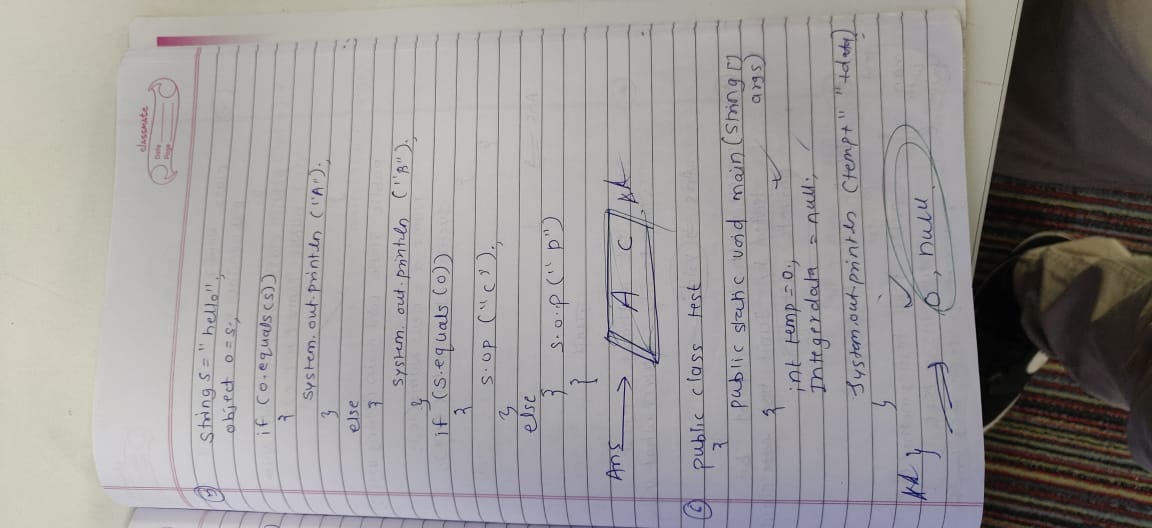 classmate
Date
Page
5
String s = "hello";
object o = s;
if (o.equals(s))
{
System.out.println ("A");
}
else
{
System.out.println ("B");
}
if (s.equals(o))
{
s.op ("c");
}
else
}
s.o.p ("D")
}
Ans → A C
6 public class test
{
public static void main (String []
args)
{
int temp = 0;
Integer data = null;
System.out.println (temp + " " + data)
}
}
⇒ 0, null